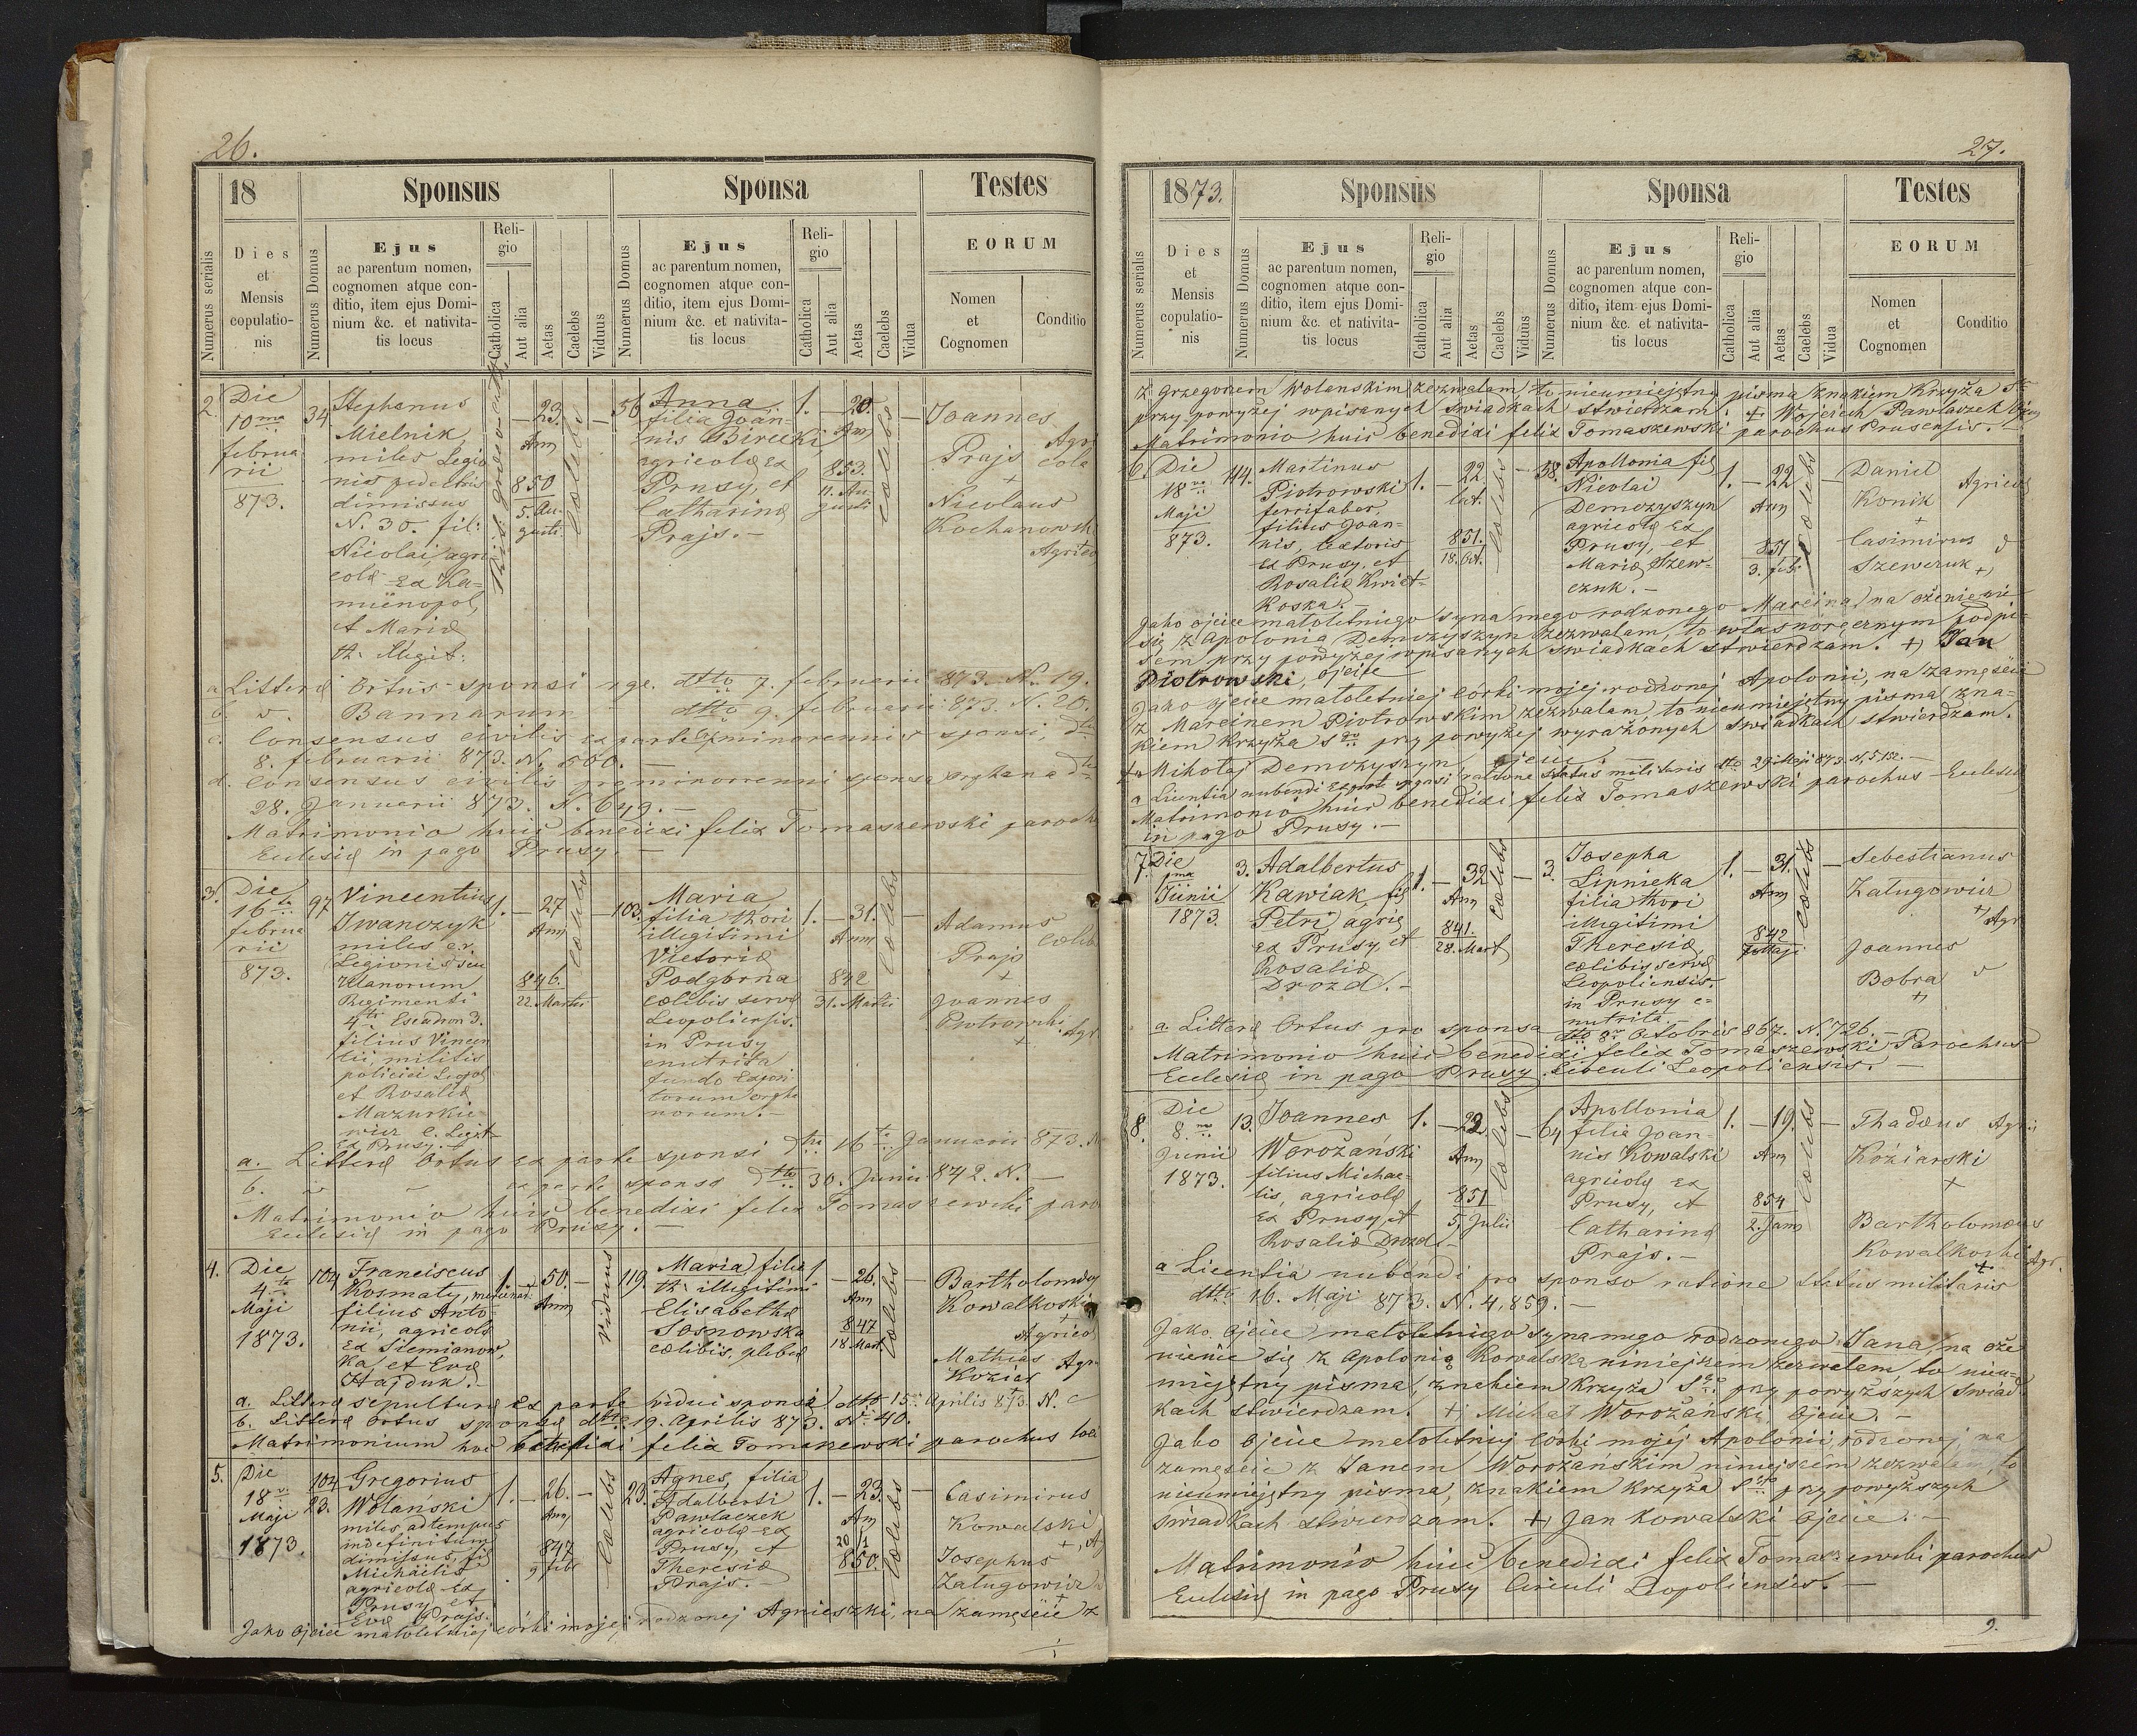 26.
18
Sponsus
Sponsa
Testes
Numerus serialis
Dies
et
Mensis
copulatio-
nis
Numerus Domus
Ejus
ac parentum nomen,
cognomen atque con-
ditio, item ejus Domi-
nium &c. et nativita-
tis locus
Reli-
gio
Catholica
Aut alia
Aetas
Caelebs
Viduus
Numerus Domus
Ejus
ac parentum nomen,
cognomen atque con-
ditio, item ejus Domi-
nium &c. et nativita-
tis locus
Reli-
gio
Catholica
Aut alia
Aetas
Caelebs
Vidua
EORUM
Nomen
et
Cognomen
Conditio
2. Die
10ma
februa
rii
873.
34
Stephanus
Mielnik,
miles Legio
nis pedestris
dimissus
N. 30. fil:
Nicolai, agri
colæ ex Ka-
mienopol,
et Mariæ
th. illegit:
23.
Ann
850
5. Au-
gusti
Cœlebs
56
Anna
filia Joan-
nis Birecki,
agricolæ ex
Prusy, et
Catharinæ
Prajs. -
1. - 20.
Ann
853.
11. Au-
gusti
Cœlebs
Joannes
Prajs
+
Agri
cola
Nicolaus
Kochanowski
Agricol
a Litteræ Ortus sponsi rge. dtto 7. februarii 873. N. 19.
b. " Bannorum dtto 9. februarii 873. N. 20.
c. Consensus civilis ex parte minorennis sponsi, dto
8. februarii 873. N. 560. -
d. Consensus civilis pro minorenni sponsa orphana dto
28. Januarii 873. N. 649. -
Matrimonio huic benedixi felix Tomaszewski paroch
Ecclesiæ in pago Prusy. -
3. Die
16ta
februa
rii
873.
97
Vincentius
Iwanczyk
miles ex
Legionis seu
Ulanorum
Regimenti
4ti Escadron 3.
filius Vincen
tii, militis
policiei Leopol
et Rosaliæ
Mazurkie
wicz c. Legit-
Ex Prusy. -
1. - 27
Ann
846.
22. Martii
Cœlebs
103.
Maria,
filia thori
illegitimi
Victoriæ
Podgórna
cœlibis servæ
Leopoliensis.
in Prusy
enutrita
fundo Expori
torum orpha
norum. -
1. - 31.
Ann
842
31. Martii
Cœlebs
Adamus
Prajs
+
Cœlebs
Joannes
Piotrowski
+
Agr
a. Litteræ Ortus ex parte sponsi dtto 16ta Januarii 873. N
b. " " ex parte sponsæ dtto 30. Junii 842. N. -
Matrimonio huic benedixi felix Tomaszewski paro
Ecclesiæ in pago Prusy. -
4. Die
4ta
Maji
1873.
104
Franciscus
Kosmaty, mercenar
filius Anto-
nii, agricolæ
Ex Siemianów
ka, et Evæ
Hajduk. -
1. - 50. -
Ann
Viduus
119.
Maria, filia
th. illegitimi
Elisabethæ
Sosnowska
cœlibis, plebeæ
1 - 26.
Ann
847
18 Mart
Cœlebs
Bartholomeus
Kowalkoski
+
Agricol
Mathias
Kozier
Agr
a. Litteræ sepulturæ ex parte vidui sponsi dtto 15ta Aprilis 873. N.
b. Litteræ Ortus sponsæ dtto 19. Aprilis 873. N. 40.
Matrimonium hoc benedixi felix Tomaszewski parochus loci
5. Die
18va
Maji
1873.
104
23.
Gregorius
Wolański
miles, ad tempus
indefinitum
dimissus, fil
Michaelis
agricolæ Ex
Prusy et
Evæ Prajs.
1. - 26. -
Ann
847
9 febr
Cœlebs
23.
Agnes, filia
Adalberti
Pawlaczek
agricolæ ex
Prusy, et
Theresiæ
Prajs. -
1. - 23.
Ann
20/1
850.
Cœlebs
Casimirus
Kowalski
+, Ag
Josephus
Zalugowicz
+
Jako Ojciec małoletniej córki mojej rodzonej Agnieszki, na zamęście z
27.
1873.
Sponsus
Sponsa
Testes
Numerus serialis
Dies
et
Mensis
copulatio-
nis
Numerus Domus
Ejus
ac parentum nomen,
cognomen atque con-
ditio, item ejus Domi-
nium &c. et nativita-
tis locus
Reli-
gio
Catholica
Aut alia
Aetas
Caelebs
Viduus
Numerus Domus
Ejus
ac parentum nomen,
cognomen atque con-
ditio, item ejus Domi-
nium &c. et nativita-
tis locus
Reli-
gio
Catholica
Aut alia
Aetas
Caelebs
Vidua
EORUM
Nomen
et
Cognomen
Conditio
z Grzegorzem Wolanskim zezwalam, to nieumiejętny pisma znakiem Krzyża Sgo
przy powyżej wpisanych świadkach stwierdzam. + Wojciech Pawlaczek Ojciec
Matrimonio huic benedixi felix Tomaszewski parochus Prusensis. -
6. Die
18va
Maji
873.
44.
Martinus
Piotrowski
ferrifaber,
filius Joan-
nis, textoris
Ex Prusy, et
Rosaliæ Kwiat-
Koska. -
1. - 22
Oct.
851.
18. Oct.
Cœlebs
58.
Apollonia fil
Nicolai
Demczyszyn
agricolæ Ex
Prusy, et
Mariæ Szew-
czuk. -
1. - 22
Ann
851
3. febr
Cœlebs
Daniel
Konik
+
Agricol
Casimirus
Szewczuk +,
Jako ojciec małoletniego syna mego rodzonego Marcina, na ożenienie
się z Apolonia Demczyszyn zezwalam, to własnoręcznym podpi-
sem przy powyżej wpisanych świadkach stwierdzam. + Jan
Piotrowski, ojciec
Jako ojciec małoletniej córki mojej rodzonej Apolonii, na zamęście
z Marcinem Piotrowskim zezwalam, to nieumiejętny pisma zna-
kiem Krzyża Sgo przy powyżej wyrażonych świadkach stwierdzam.
+ Mikołaj Demczyszyn, ojciec
a Licentia nubendi Ex parte sponsi ratione status militaris dto 29 Maji 873 N. 5,152. -
Matrimonio huic benedixi felix Tomaszewski parochus Ecclesiæ
in pago Prusy. -
7. Die
1ma
Junii
1873.
3.
Adalbertus
Kawiak, fil
Petri, agric
ex Prusy, et
Rosaliæ
Drozd. -
1. - 32
Ann
841.
28. Mart
Cœlebs
3.
Josepha
Lipnicka
filia thori
illegitimi
Theresiæ
cœlibis servæ
Leopoliensis.
in Prusy e-
nutrita. -
1. - 31.
Ann
842
7 Maji
Cœlebs
Sebestianus
Zalugowicz
+, Agr
Joannes
Bobra
+
a. Litteræ Ortus pro sponsa dto 8va Octobris 867. N. 726. -
Matrimonio huic benedixi felix Tomaszewski Parochus
Ecclesiæ in pago Prusy Circuli Leopoliensis. -
8. Die
8va
Junii
1873.
13.
Joannes
Worożański
filius Michae-
lis, agricolæ
Ex Prusy, et
Rosaliæ Drozd. -
1. - 22
Ann
851
5. Julii
Cœlebs
64
Apollonia
filia Joan-
nis Kowalski
agricolæ Ex
Prusy, et
Catharinæ
Prajs. -
1. - 19. -
Ann
854
2. Jann
Cœlebs
Thadæus
Koźiarski
+
Bartholomæus
Kowalkoski
+
Agr.
a Licentia nubendi pro sponso ratione status militaris
dtto 16. Maji 873. N. 4,859. -
Jako Ojciec małoletniego syna mego rodzonego Jana, na oże
nienie się z Apolonią Kowalską niniejszem zezwalam, to nieu-
miejętny pisma, znakiem Krzyża Sgo przy powyższych świad-
kach stwierdzam. + Michał Worożański, Ojciec. -
Jako Ojciec małoletniej córki mojej Apolonii, rodzonej, na
zamęście z Janem Worożanskim niniejszem zezwalam, to
nieumiejętny pisma, znakiem Krzyża Sgo przy powyższych
świadkach stwierdzam. + Jan Kowalski Ojciec. -
Matrimonio huic benedixi felix Tomaszewski parochus
Ecclesiæ in pago Prusy Circuli Leopoliensis. -
9.